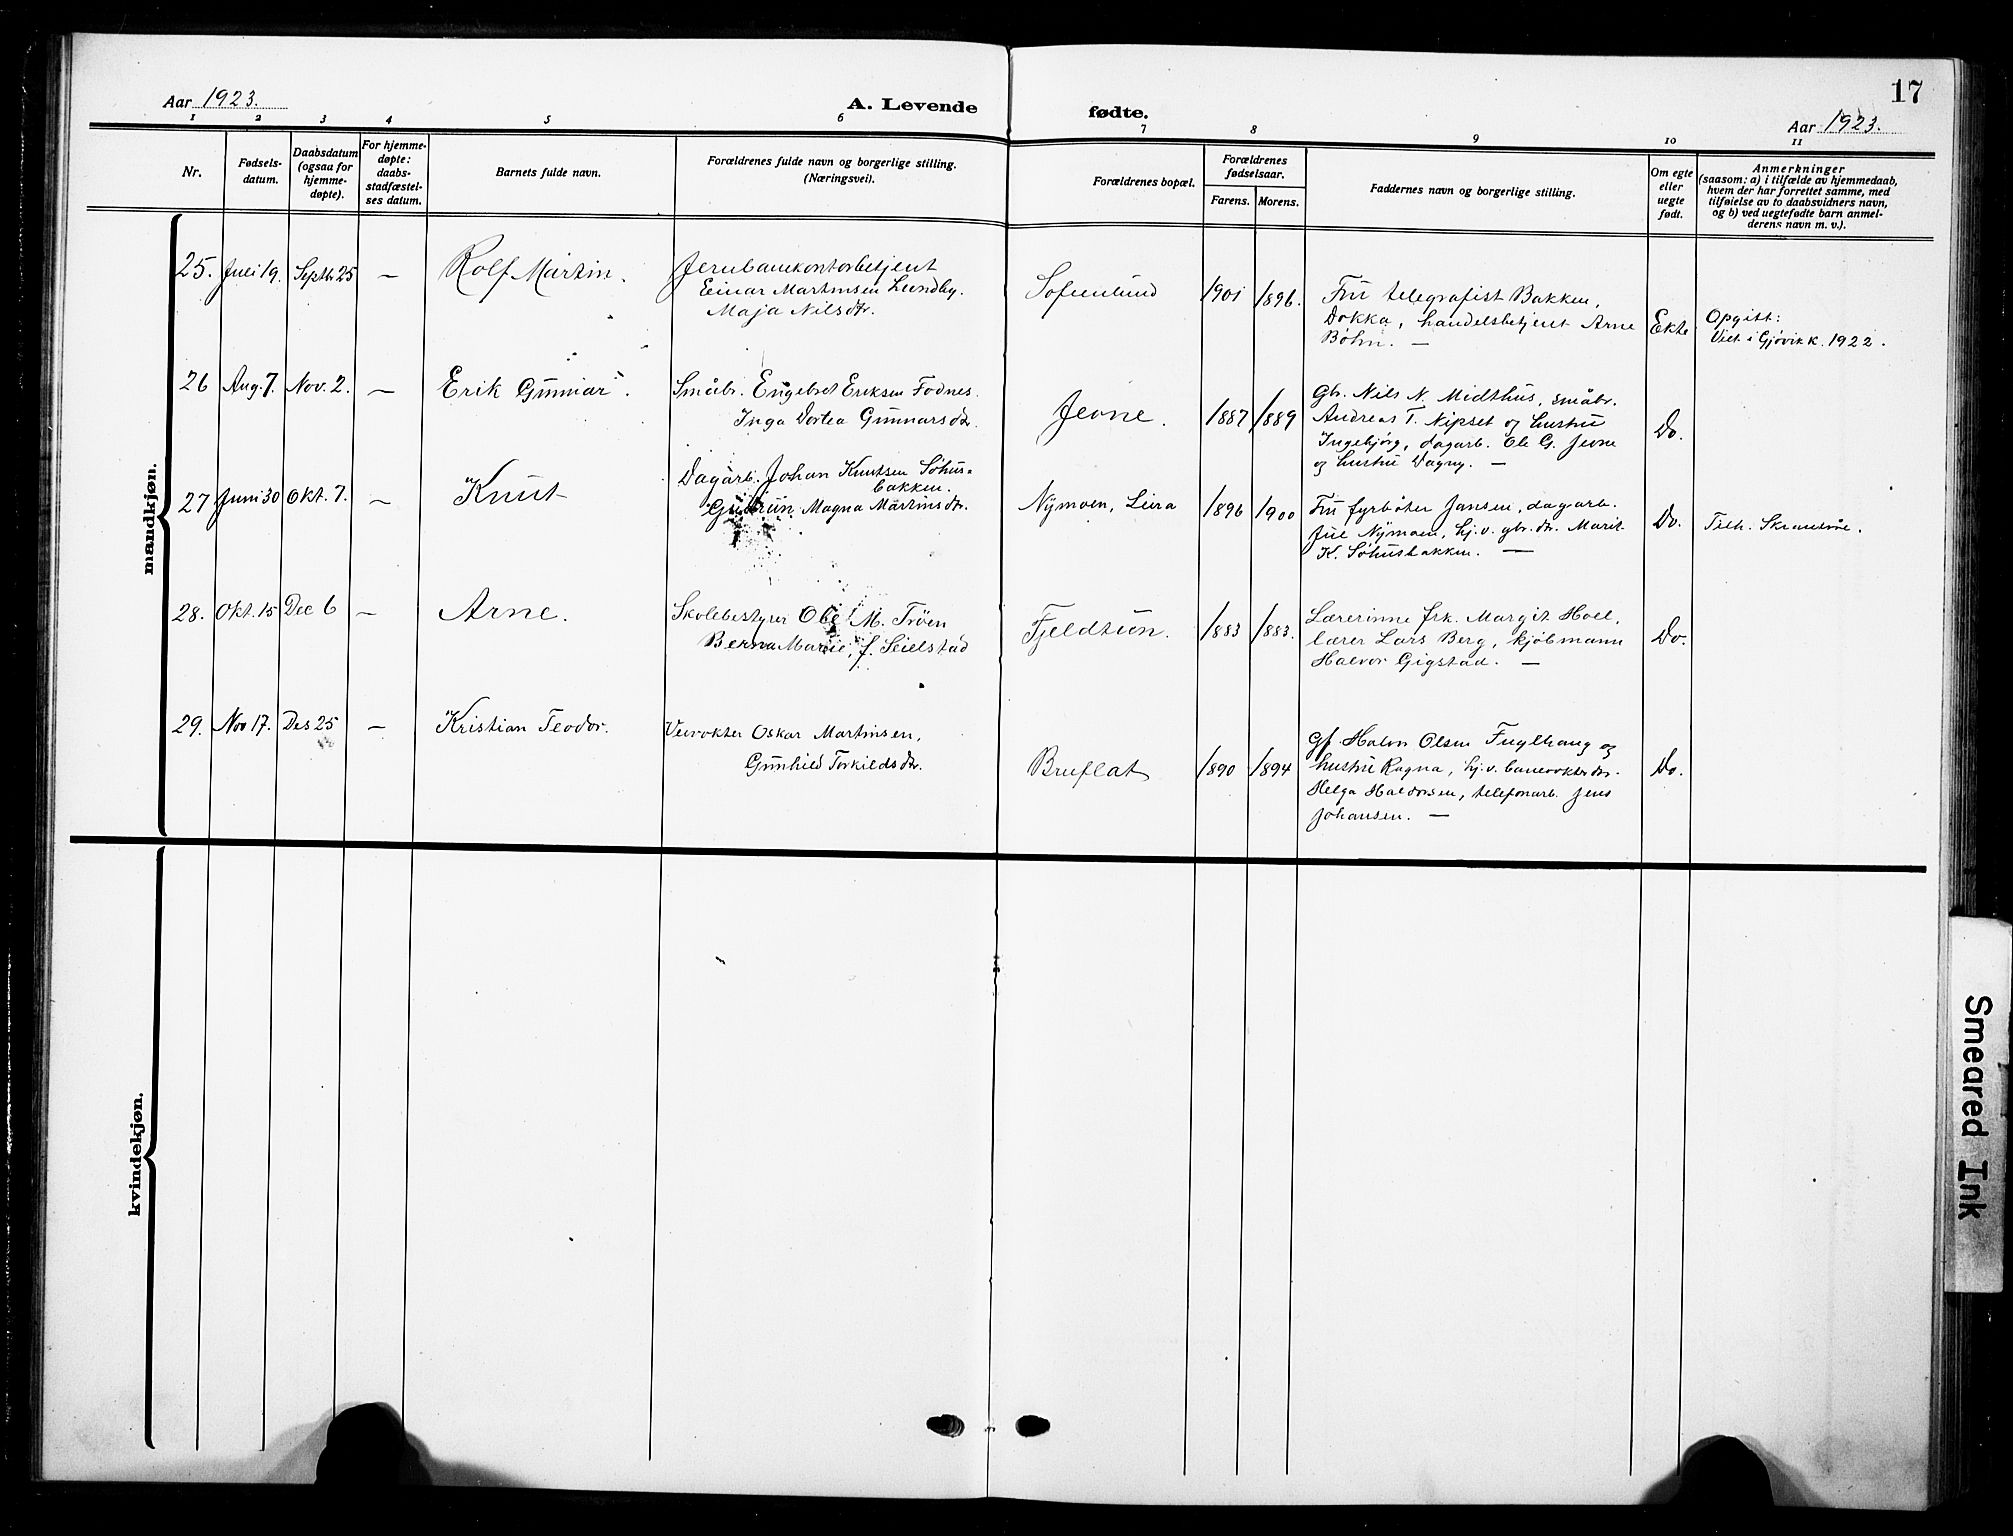 17
Aar 1923.
A. Levende fødte.
Aar 1923.
1 2 3 4 5 6 7 8 9 10 11
Nr.
Fødsels-
datum.
Daabsdatum
(ogsaa for
hjemme-
døpte).
For hjemme-
døpte:
daabs-
stadfæstel-
ses datum.
Barnets fulde navn.
Forældrenes fulde navn og borgerlige stilling.
(Næringsvei).
Forældrenes bopæl.
Forældrenes
fødselsaar.
Farens. Morens.
Faddernes navn og borgerlige stilling.
Om egte
eller
uegte
født.
Anmerkninger
(saasom: a) i tilfælde av hjemmedaab,
hvem der har forrettet samme, med
tilføielse av to daabsvidners navn,
og b) ved uegtefødte barn anmel-
derens navn m. v.).
mandkjøn.
25. Juli 19. Septb 25 — Rolf Martin.
Jernbanekontorbetjent
Einar Martinsen Lundby.
Maja Nilsdtr.
Sofienlund 1901 1896.
Fru telegrafist Bakken,
Dokka, handelsbetjent Arne
Bøhn. —
Ekte
Opgitt:
Viet i Gjøvik k. 1922.
26 Aug. 7. Nov. 2. — Erik Gunnar
Småbr. Engebret Eriksen Fodnes.
Inga Dortea Gunnarsdtr.
Jevne. 1887 1889
Gbr. Nils N. Midthus, småbr.
Andreas T. Nipset og hustru
Ingebjørg, dagarb. Ole G. Jevne
og hustru Dagny. —
Do.
27 Juni 30 Okt. 7. — Knut
Dagarb. Johan Knutsen Søhus-
bakken.
Gudrun Magna Martinsdtr.
Nymoen, Leira 1896 1900
Fru fyrbøter Jansen, dagarb.
Jul Nymoen, hj.v. gbr. dtr. Marit
K. Søhusbakken. —
Do.
Tilh.
28. Okt. 15 Dec 6 — Arne.
Skolebestyrer Ole M. Trøen
Berna Marie, f. Seielstad
Fjeldtun. 1883 1883.
Lærerinne frk. Margit Hoel,
lærer Lars Berg, kjøbmann
Halvor Gigstad. —
Do.
29. Nov 17. Des 25 — Kristian Teodor.
Veivokter Oskar Martinsen,
Gunhild Torkildsdtr.
Bruflat 1890 1894
Gf. Halvor Olsen Fuglhaug og
hustru Ragna, hj.v. banevokterdtr.
Helga Haldorsen, telefonarb. Jens
Johansen. —
Do.
kvindekjøn.
Smeared Ink